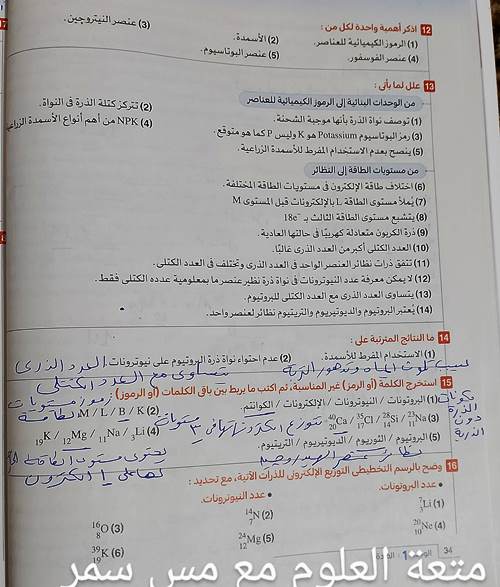 12 اذكر أهمية واحدة لكل من :
(1) الرموز الكيميائية للعناصر.
(2) الأسمدة.
(3) عنصر النيتروچين.
(4) عنصر الفوسفور.
(5) عنصر البوتاسيوم.
13 علل لما يأتى :
من الوحدات البنائية إلى الرموز الكيميائية للعناصر
(1) توصف نواة الذرة بأنها موجبة الشحنة.
(2) تتركز كتلة الذرة فى النواة.
(3) رمز البوتاسيوم Potassium هو K وليس P كما هو متوقع.
(4) NPK من أهم أنواع الأسمدة الزراعية
(5) ينصح بعدم الاستخدام المفرط للأسمدة الزراعية.
من مستويات الطاقة إلى النظائر
(6) اختلاف طاقة الإلكترون فى مستويات الطاقة المختلفة.
(7) يُملأ مستوى الطاقة L بالإلكترونات قبل المستوى M
(8) يتشبع مستوى الطاقة الثالث بـ 18e⁻
(9) ذرة الكربون متعادلة كهربيًا فى حالتها العادية.
(10) العدد الكتلى أكبر من العدد الذرى غالبًا.
(11) تتفق ذرات نظائر العنصر الواحد فى العدد الذرى وتختلف فى العدد الكتلى.
(12) لا يمكن معرفة عدد النيوترونات فى نواة ذرة نظير عنصر ما بمعلومية عدده الكتلى فقط.
(13) يتساوى العدد الذرى مع العدد الكتلى للبروتيوم.
(14) يُعتبر البروتيوم والديوتيريوم والتريتيوم نظائر لعنصر واحد.
14 ما النتائج المترتبة على :
(1) الاستخدام المفرط للأسمدة.
(2) عدم احتواء نواة ذرة البروتيوم على نيوترونات. العدد الذرى
تسبب تلوث المياه وتدهور التربة
يتساوى مع العدد الكتلى
15 استخرج الكلمة (أو الرمز) غير المناسبة، ثم اكتب ما يربط بين باقى الكلمات (أو الرموز) :
رموز مستويات الطاقة
(1) البروتونات / النيوترونات / الإلكترونات / الكوانتم.
مكونات الذرة
(2) M / L / B / K
(3) ²³₁₁Na / ²⁸₁₄Si / ³⁵₁₇Cl / ⁴⁰₂₀Ca
تتوزع الكتروناتها فى ٣ مستويات
(4) ₃Li / ₁₁Na / ₁₂Mg / ₁₉K
(5) البروتيوم / الثوريوم / الديوتيريوم / التريتيوم.
نظائر عنصر الهيدروجين
16 وضح بالرسم التخطيطى التوزيع الإلكترونى للذرات الآتية، مع تحديد :
• عدد البروتونات.
• عدد النيوترونات.
(1) ⁷₃Li
(2) ¹⁴₇N
(3) ¹⁶₈O
(4) ²⁰₁₀Ne
(5) ²⁴₁₂Mg
(6) ³⁹₁₉K
34
متعة العلوم مع مس سمر